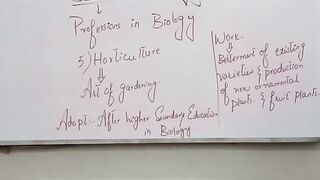 Professions in Biology
5) Horticulture
Art of gardening.
Adopt:- After higher Secondary Education
in Biology
Work:-
Betterment of existing
varieties & production
of new ornamental
plants. & fruit plants.